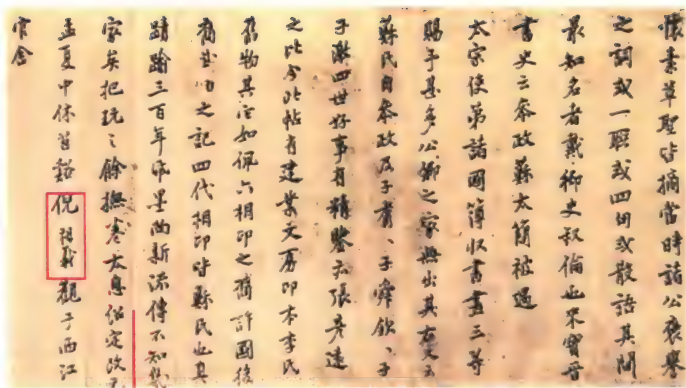 懷素草聖皆摘當時諸公褒舉
之詞或一聯或四句或散語其間
最知名者戴御史叔倫也米寶晉
書史云參政蘇太簡被遇
太宗使弟諸國簿收書畫三等
賜予甚多公卿之家無出其右又云
蘇氏自參政及子耆、子舜欽、子
子激四世好事有精鑒亦張彥遠
之比今此帖有建業文房印本李氏
舊物其後如佩六相印之裔許國後
裔 之記四代相印皆蘇氏也其
蹟踰三百年紙墨尚新流傳不知幾
家矣把玩之餘撫卷太息紹定改元
孟夏中休苕谿倪祖義觀于西江
官舍